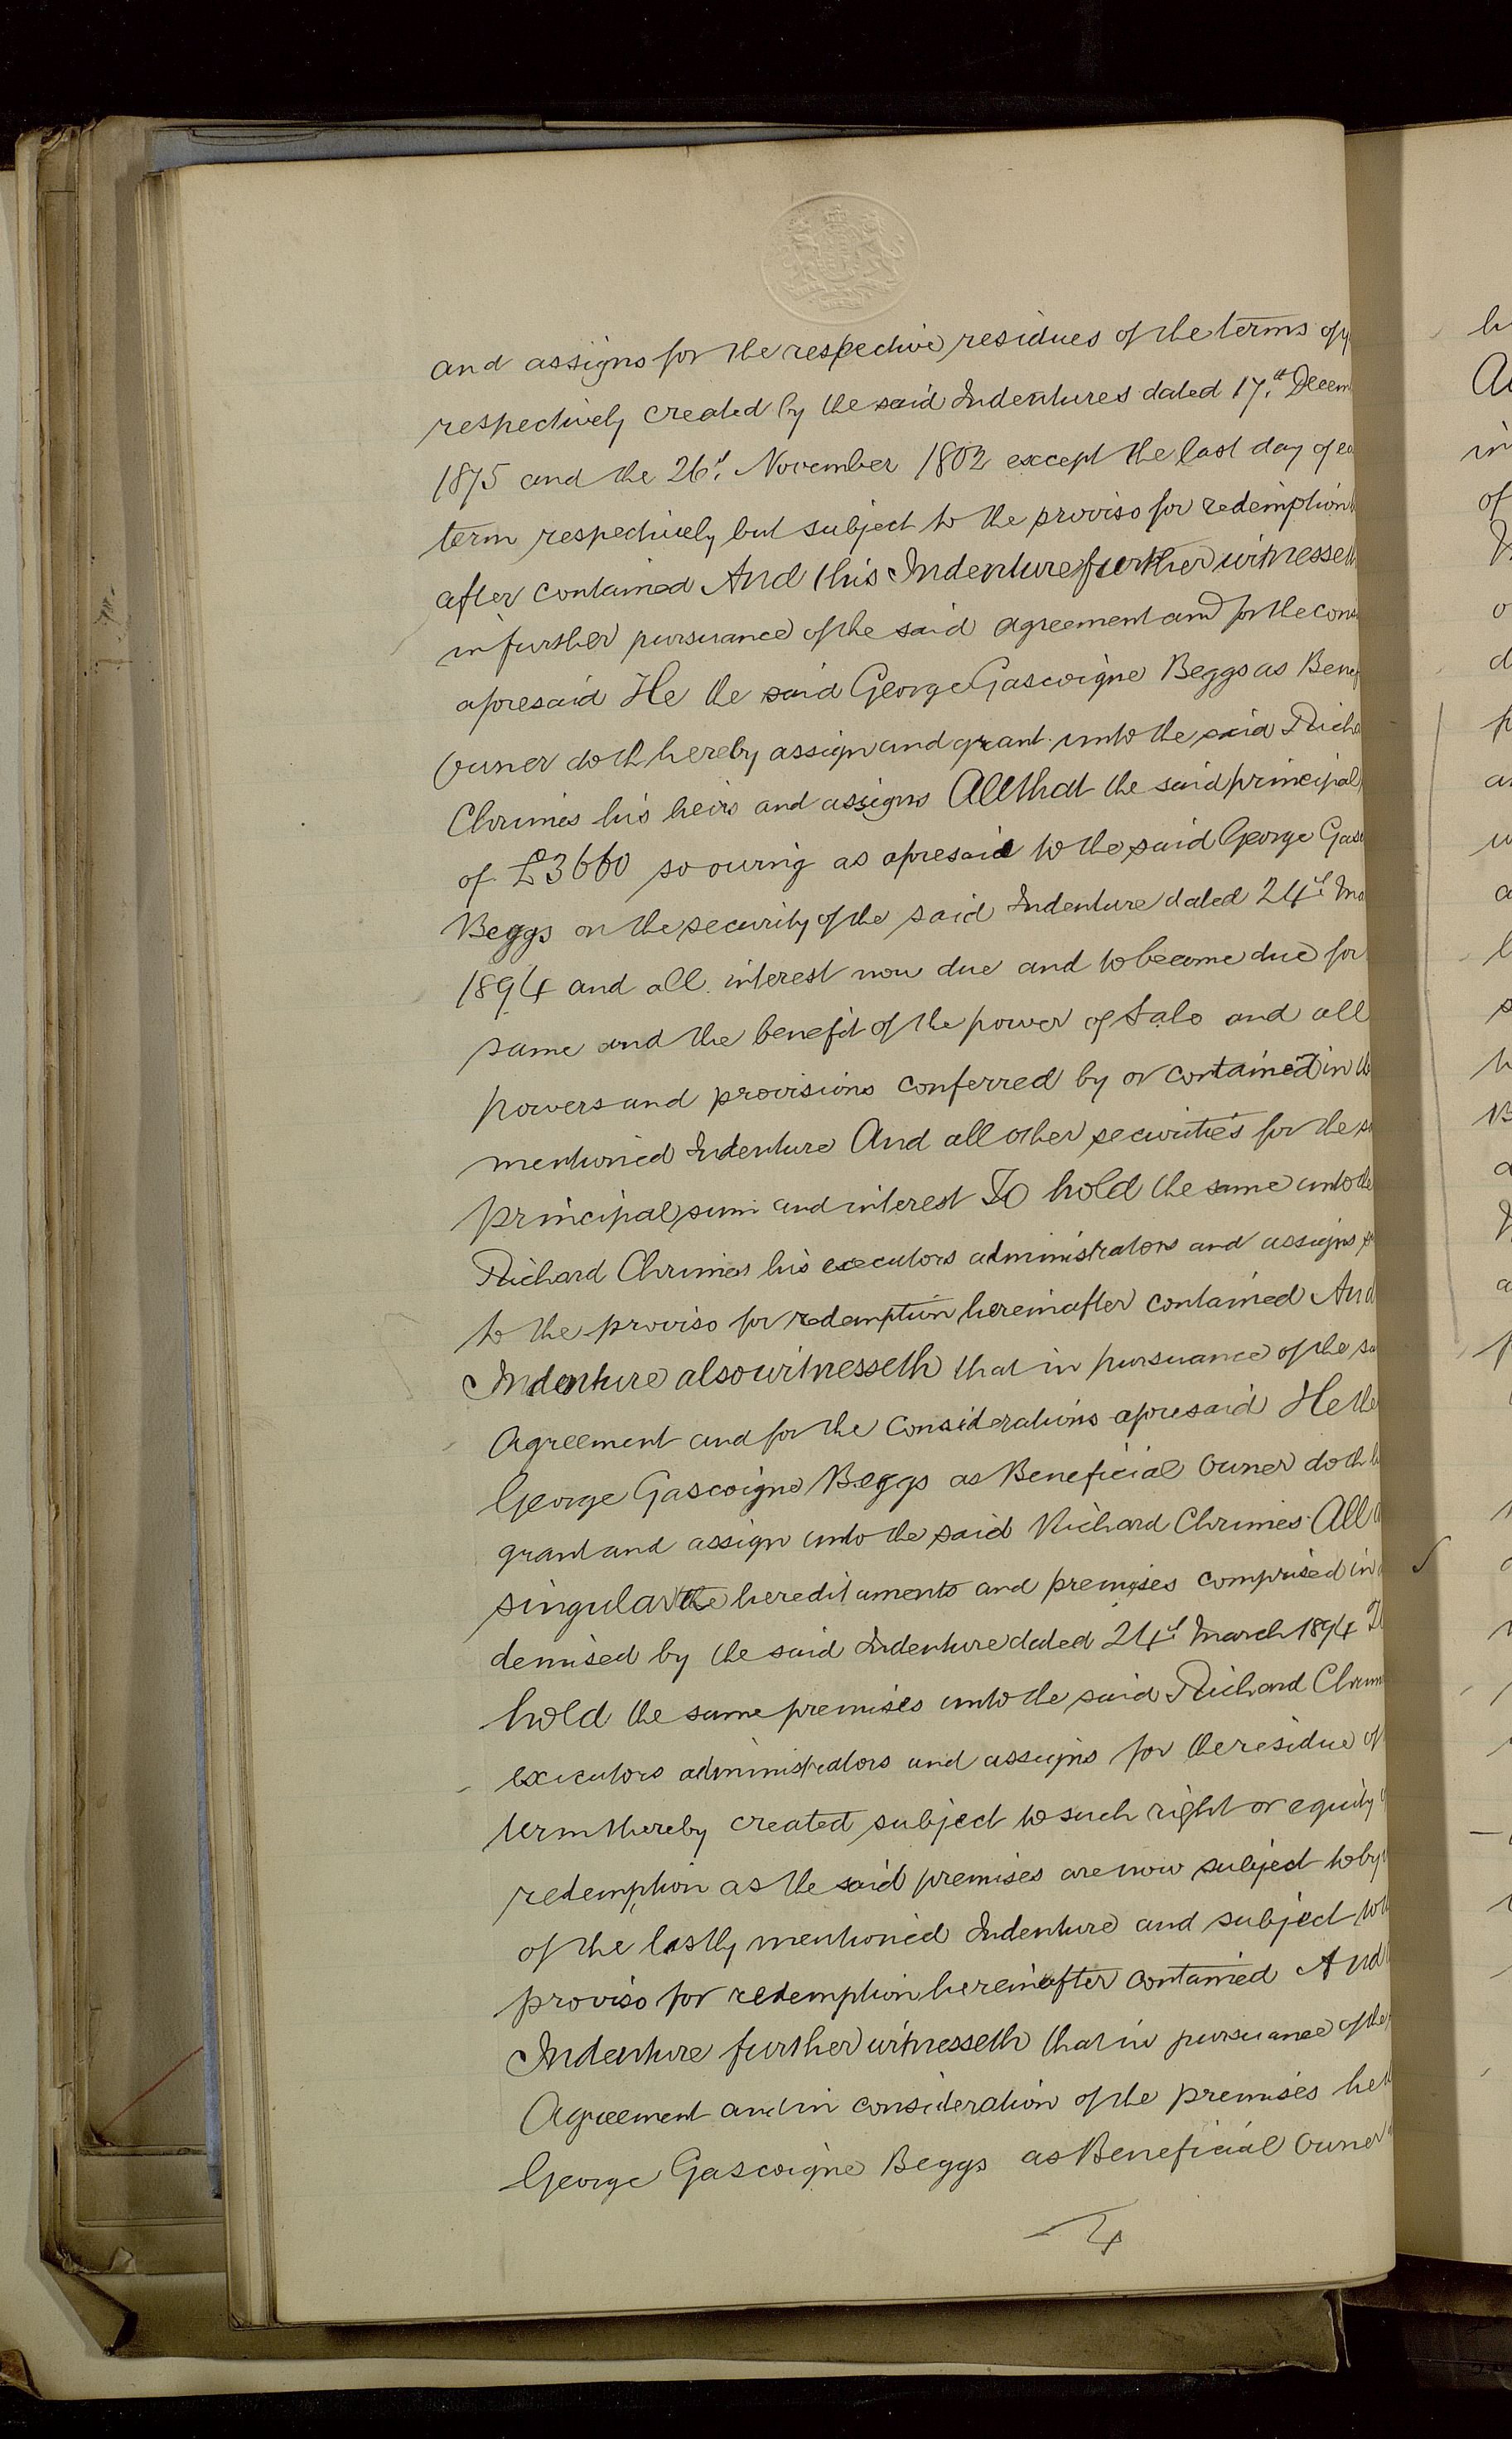 and assigns for the respective residues of the terms of y
respectively created by the said Indentures dated 17th Decem
1875 and the 26th November 1802 except the last day of ea
term respectively but subject to the proviso for redemption
after contained And this Indenture further witnesseth
in further pursuance of the said agreement and for the cons
aforesaid He the said George Gascoigne Beggs as Benef
Owner doth hereby assign and grant unto the said Richa
Chrimes his heirs and assigns All that the said principal
of £3660 so owing as aforesaid to the said George Gasc
Beggs on the security of the said Indenture dated 24th Ma
1894 and all interest now due and to become due for
same and the benefit of the power of Sale and all
powers and provisions conferred by or contained in th
mentioned Indenture And all other securities for the sa
principal sum and interest To hold the same unto the
Richard Chrimes his executors administrators and assigns
to the proviso for redemption hereinafter contained And
Indenture also witnesseth that in pursuance of the sa
Agreement and for the Considerations aforesaid He the
George Gascoigne Beggs as Beneficial Owner doth h
grant and assign unto the said Richard Chrimes All
singular the hereditaments and premises comprised in
demised by the said Indenture dated 24th March 1894 T
hold the same premises unto the said Richard Chrim
executors administrators and assigns for the residue of
term thereby created subject to such right or equity
redemption as the said premises are now subject to by
of the lastly mentioned Indenture and subject to th
proviso for redemption hereinafter contained And
Indenture further witnesseth that in pursuance of the
Agreement and in consideration of the premises he th
George Gascoigne Beggs as Beneficial Owner